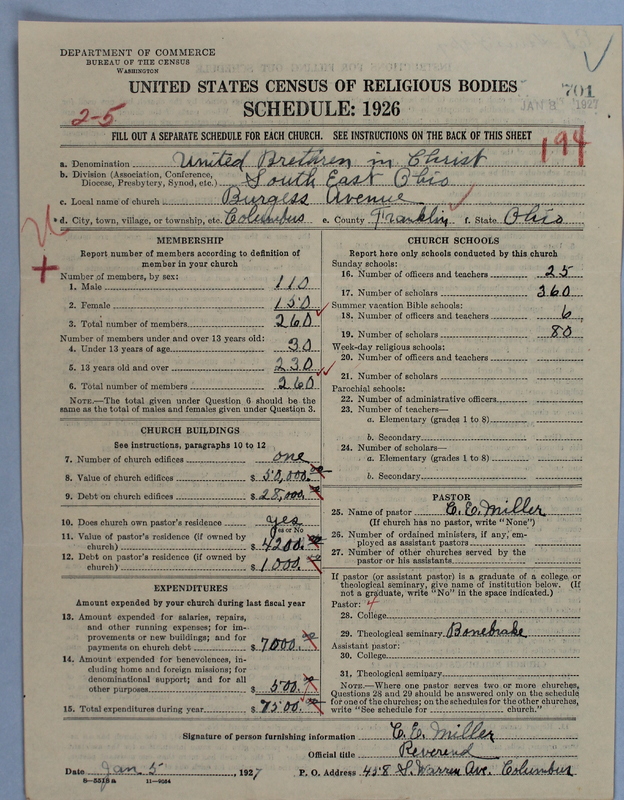 DEPARTMENT OF COMMERCE
BUREAU OF THE CENSUS
WASHINGTON
UNITED STATES CENSUS OF RELIGIOUS BODIES
SCHEDULE: 1926
701
JAN 8 1927
2-5
FILL OUT A SEPARATE SCHEDULE FOR EACH CHURCH. SEE INSTRUCTIONS ON THE BACK OF THIS SHEET
194
a. Denomination United Brethren in Christ
b. Division (Association, Conference, Diocese, Presbytery, Synod, etc.) South East Ohio
c. Local name of church Burgess Avenue
*d. City, town, village, or township, etc. Columbus e. County Franklin f. State Ohio
MEMBERSHIP
Report number of members according to definition of
member in your church
Number of members, by sex:
1. Male 110
2. Female 150
3. Total number of members 260
Number of members under and over 13 years old:
4. Under 13 years of age 30
5. 13 years old and over 230
6. Total number of members 260
NOTE.—The total given under Question 6 should be the
same as the total of males and females given under Question 3.
CHURCH BUILDINGS
See instructions, paragraphs 10 to 12
7. Number of church edifices one
8. Value of church edifices $ 50,000.00
9. Debt on church edifices $ 28,000.00
10. Does church own pastor's residence yes
Yes or No
11. Value of pastor's residence (if owned by
church) $ 4200.00
12. Debt on pastor's residence (if owned by
church) $ 1000.00
EXPENDITURES
Amount expended by your church during last fiscal year
13. Amount expended for salaries, repairs,
and other running expenses; for im-
provements or new buildings; and for
payments on church debt $ 7000.00
14. Amount expended for benevolences, in-
cluding home and foreign missions; for
denominational support; and for all
other purposes $ 500.00
15. Total expenditures during year $ 7500.00
CHURCH SCHOOLS
Report here only schools conducted by this church
Sunday schools:
16. Number of officers and teachers 25
17. Number of scholars 360
Summer vacation Bible schools:
18. Number of officers and teachers 6
19. Number of scholars 80
Week-day religious schools:
20. Number of officers and teachers
21. Number of scholars
Parochial schools:
22. Number of administrative officers
23. Number of teachers—
a. Elementary (grades 1 to 8)
b. Secondary
24. Number of scholars—
a. Elementary (grades 1 to 8)
b. Secondary
PASTOR
25. Name of pastor C. E. Miller
(If church has no pastor, write "None")
26. Number of ordained ministers, if any, em-
ployed as assistant pastors
27. Number of other churches served by the
pastor or his assistants
If pastor (or assistant pastor) is a graduate of a college or
theological seminary, give name of institution below. (If
not a graduate, write "No" in the space indicated.)
Pastor:
28. College
29. Theological seminary Bonebrake
Assistant pastor:
30. College
31. Theological seminary
NOTE.—Where one pastor serves two or more churches,
Questions 28 and 29 should be answered only on the schedule
for one of the churches; on the schedules for the other churches,
write "See schedule for church."
Signature of person furnishing information C. E. Miller
Official title Reverend
Date Jan 5, 1927 P. O. Address 458 S. Warren Ave. Columbus
8-5518a 11-9054